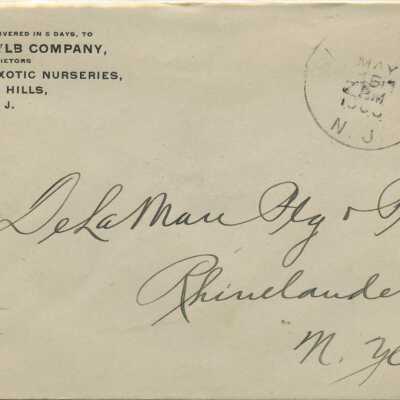 LIVERED IN 5 DAYS, TO
YLB COMPANY,
RIETORS
EXOTIC NURSERIES,
HILLS,
J.
MAY
N. J.
DeLaMare Ptg & P
Rhinelande
N. Yo